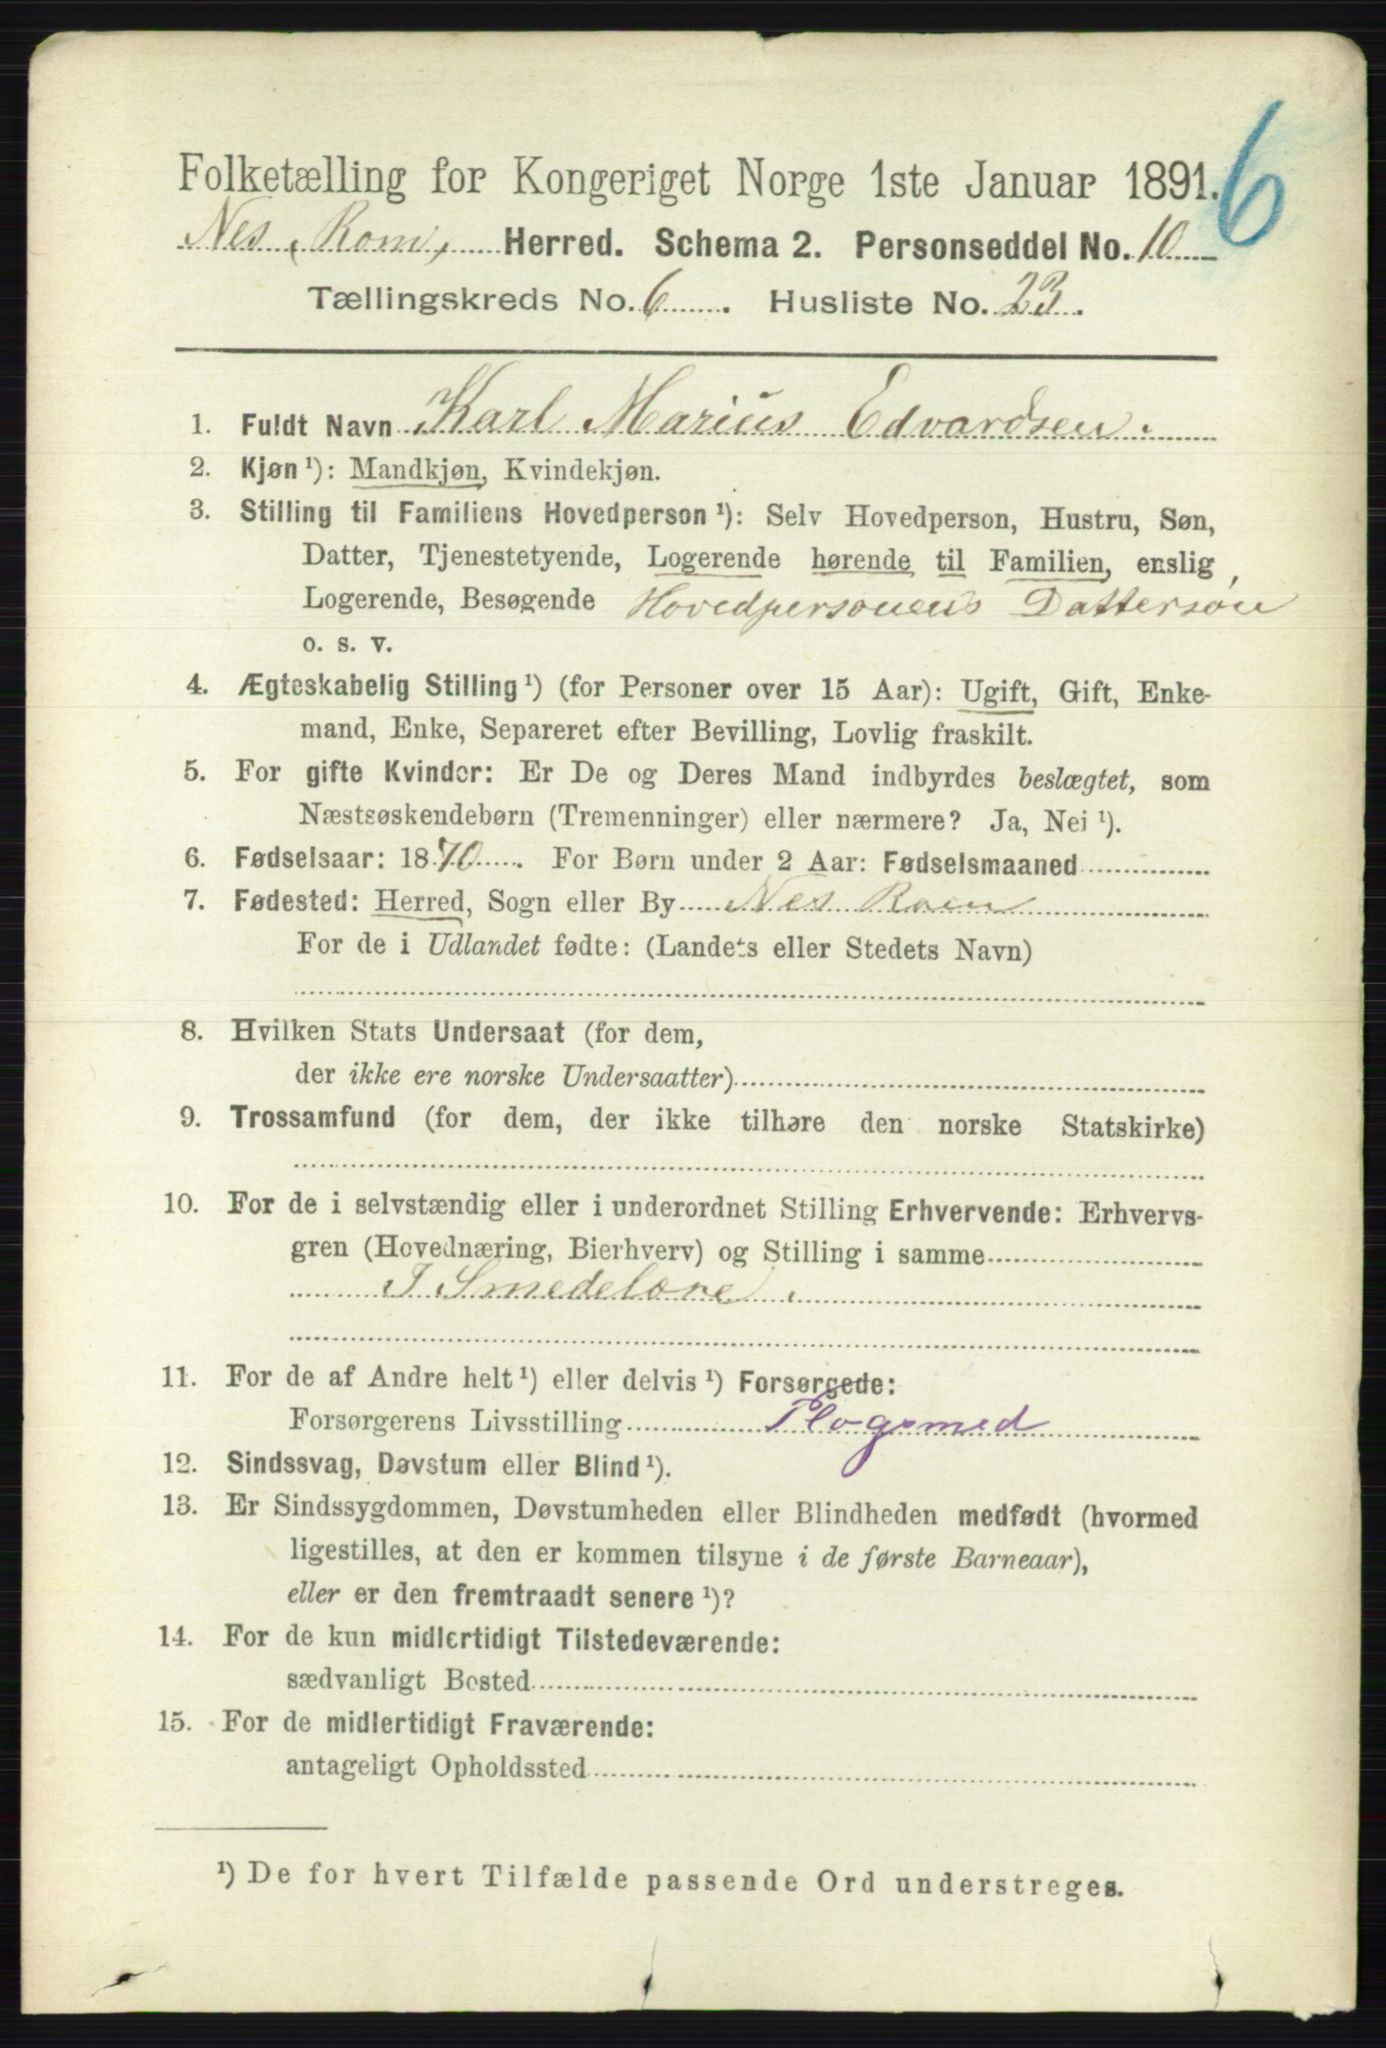 6
Folketælling for Kongeriget Norge 1ste Januar 1891.
Nes, Rom, Herred. Schema 2. Personseddel No. 10
Tællingskreds No. 6. Husliste No. 23.
1. Fuldt Navn Karl Marius Edvardsen.
2. Kjøn ¹): Mandkjøn, Kvindekjøn.
3. Stilling til Familiens Hovedperson ¹): Selv Hovedperson, Hustru, Søn,
Datter, Tjenestetyende, Logerende hørende til Familien, enslig
Logerende, Besøgende Hovedpersonens Dattersøn
o. s. v.
4. Ægteskabelig Stilling ¹) (for Personer over 15 Aar): Ugift, Gift, Enke-
mand, Enke, Separeret efter Bevilling, Lovlig fraskilt.
5. For gifte Kvinder: Er De og Deres Mand indbyrdes beslægtet, som
Næstsøskendebørn (Tremenninger) eller nærmere? Ja, Nei ¹).
6. Fødselsaar: 1870. For Børn under 2 Aar: Fødselsmaaned
7. Fødested: Herred, Sogn eller By Nes Rom
For de i Udlandet fødte: (Landets eller Stedets Navn)
8. Hvilken Stats Undersaat (for dem,
der ikke ere norske Undersaatter)
9. Trossamfund (for dem, der ikke tilhøre den norske Statskirke)
10. For de i selvstændig eller i underordnet Stilling Erhvervende: Erhvervs-
gren (Hovednæring, Bierhverv) og Stilling i samme
I Smedelære.
11. For de af Andre helt ¹) eller delvis ¹) Forsørgede:
Forsørgerens Livsstilling Plogsmed
12. Sindssvag, Døvstum eller Blind ¹).
13. Er Sindssygdommen, Døvstumheden eller Blindheden medfødt (hvormed
ligestilles, at den er kommen tilsyne i de første Barneaar),
eller er den fremtraadt senere ¹)?
14. For de kun midlertidigt Tilstedeværende:
sædvanligt Bosted
15. For de midlertidigt Fraværende:
antageligt Opholdssted
¹) De for hvert Tilfælde passende Ord understreges.